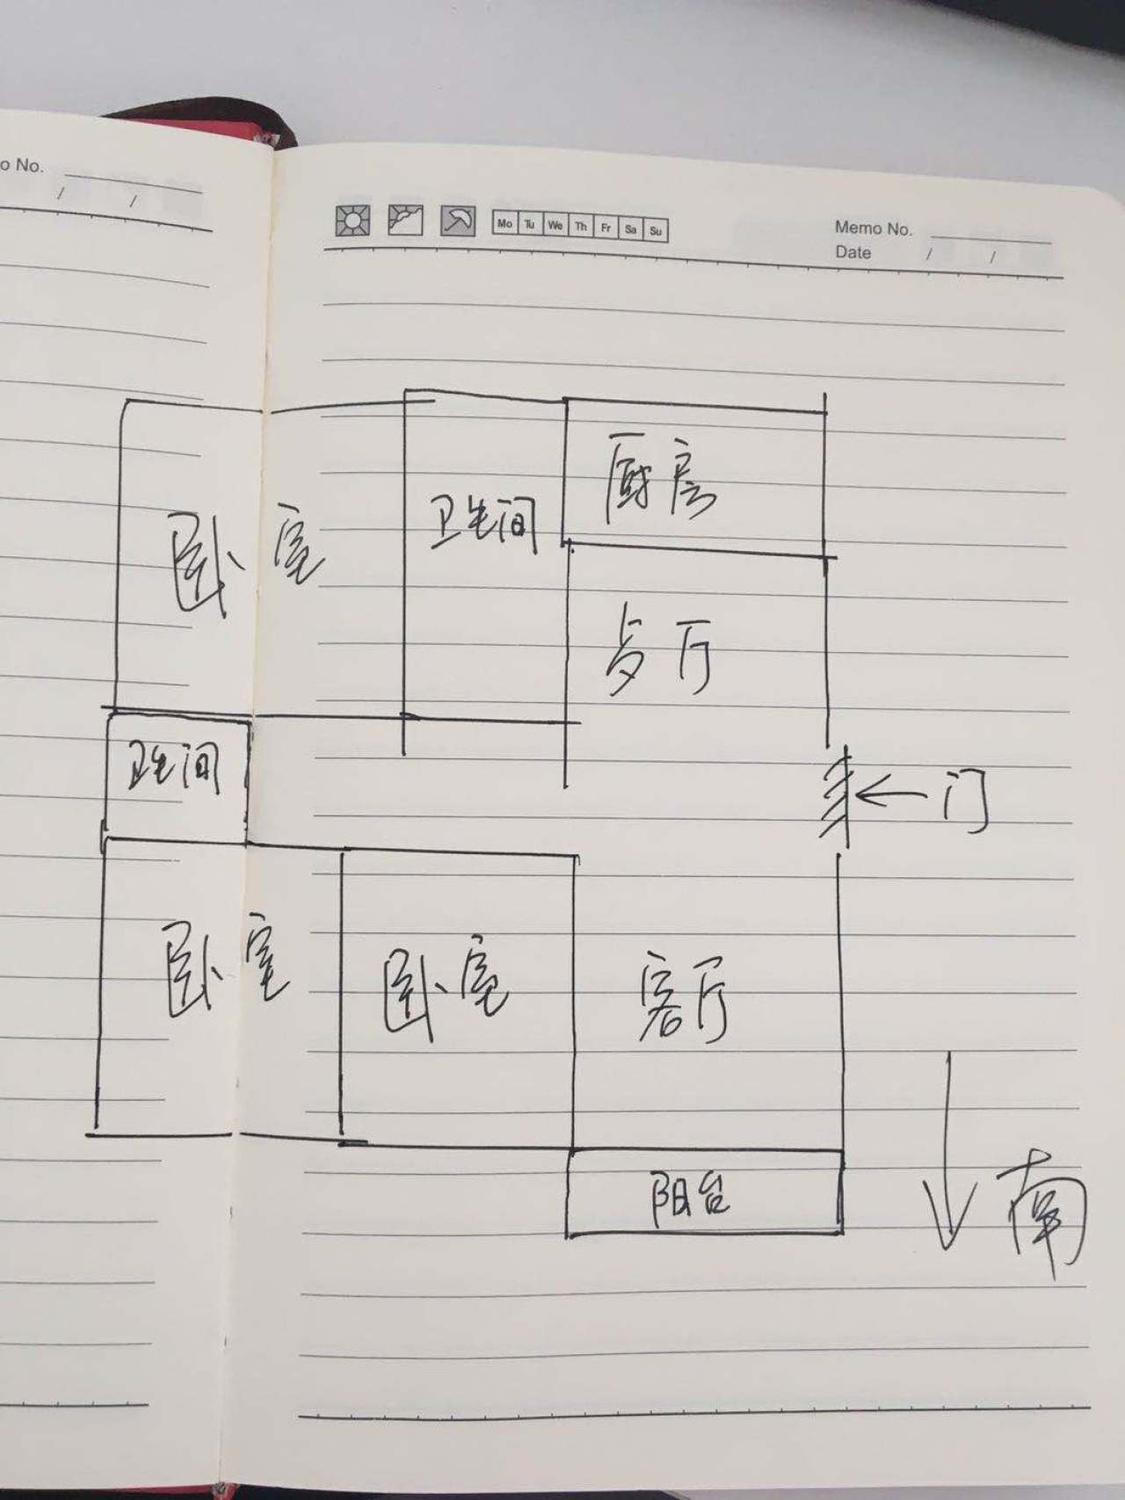 o No.
/ /
Mo Tu We Th Fr Sa Su
Memo No.
Date / /
厨房
卫生间
卧室
歺厅
卫生间
门
卧室
卧室
客厅
阳台
南